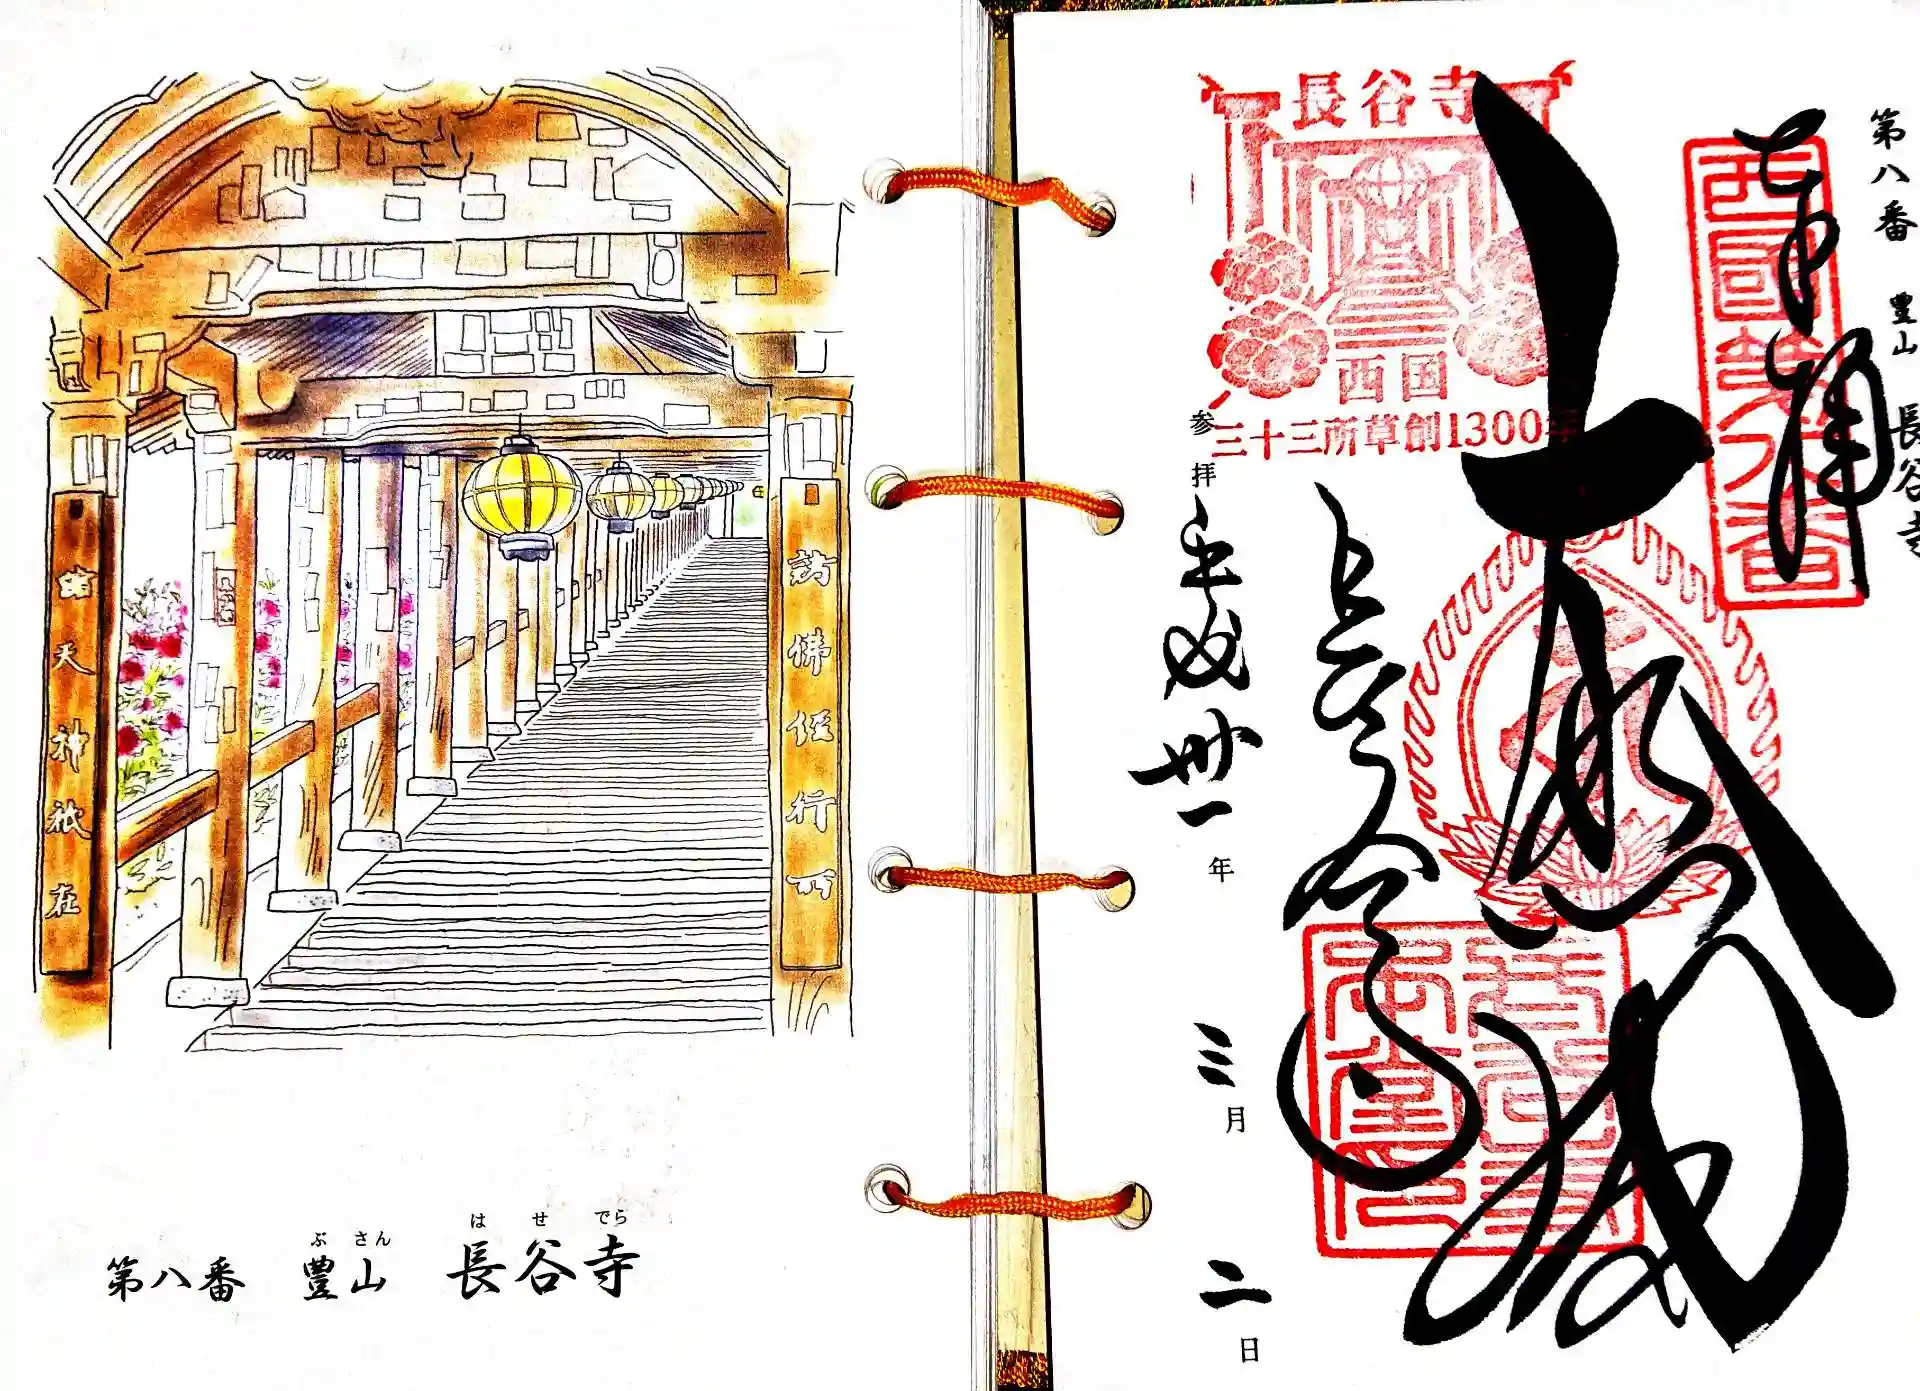 諸天神祇在
諸佛経行所
第八番 豊山 長谷寺
ぶさん はせでら
第八番 豊山 長谷寺
奉拝
西國第八番
大悲閣
長谷寺
長谷寺
西国
三十三所草創1300年
参拝 平成卅一年 三月 二日